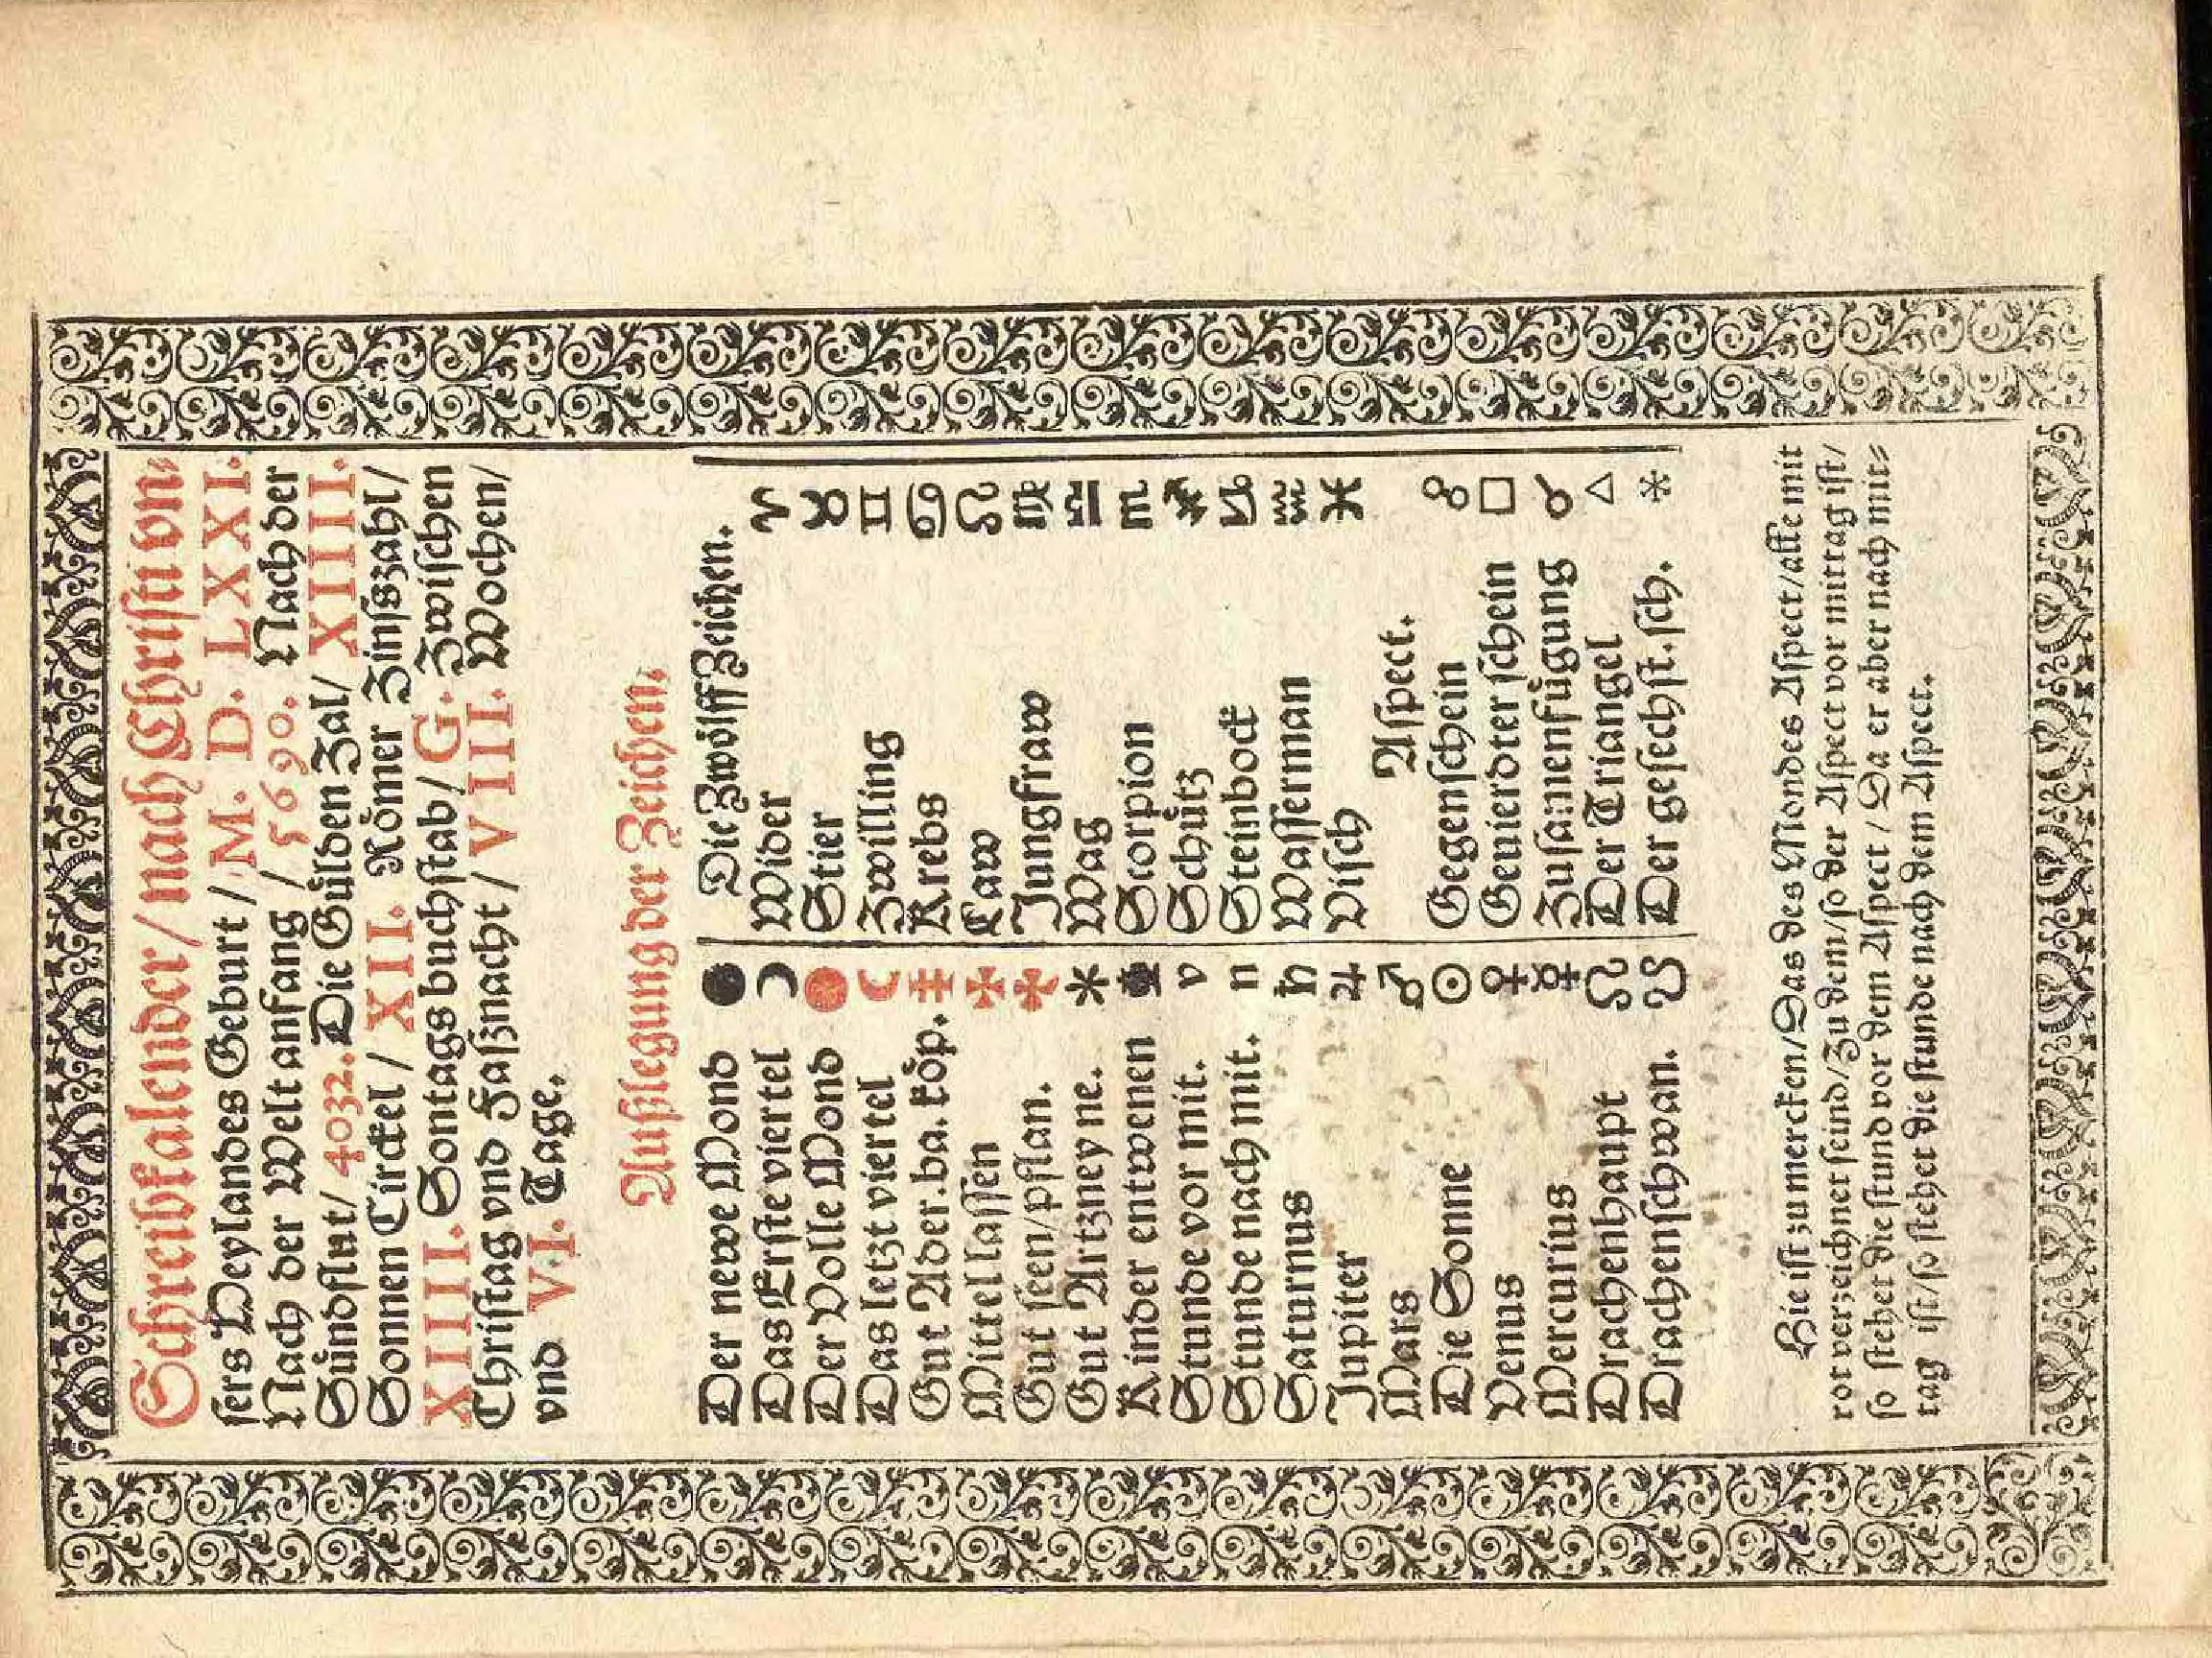 Schreibkalender / nach Christi vn⸗
sers Heylandes Geburt / M. D. LXXI.
Nach der Welt anfang / 5690. Nach der
Sündflut / 4032. Die Gülden Zal / XIIII.
Sonnen Circkel / XII. Römer Zinßzahl /
XIIII. Sontags buchstab / G. Zwischen
Christag vnd Faßnacht / VIII. Wochen /
vnd VI. Tage.
Außlegung der Zeichen.
Der newe Mond ●
Das Erste viertel ☽
Der Volle Mond ●
Das letzt viertel ☾
Gut Ader. ba. köp. ⳨
Mittel lassen ✠
Gut seen / pflan. ✠
Gut Artzney ne. *
Kinder entwenen
Stunde vor mit. v
Stunde nach mit. n
Saturnus ♄
Jupiter ♃
Mars ♂
Die Sonne ☉
Venus ♀
Mercurius ☿
Drachenhaupt ☊
Drachenschwan. ☋
Die Zwölff Zeichen.
Wider ♈
Stier ♉
Zwilling ♊
Krebs ♋
Law ♌
Jungfraw ♍
Wag ♎
Scorpion ♏
Schütz ♐
Steinbock ♑
Wasserman ♒
Visch ♓
Aspect.
Gegenschein ☍
Gevierdter schein □
Zusamenfügung ☌
Der Triangel △
Der gesechst. sch. *
Hie ist zu mercken / Das des Mondes Aspect / alle mit
rot verzeichnet seind / Zu dem / so der Aspect vor mittag ist /
so stehet die stund vor dem Aspect / Da er aber nach mit⸗
tag ist / so stehet die stunde nach dem Aspect.